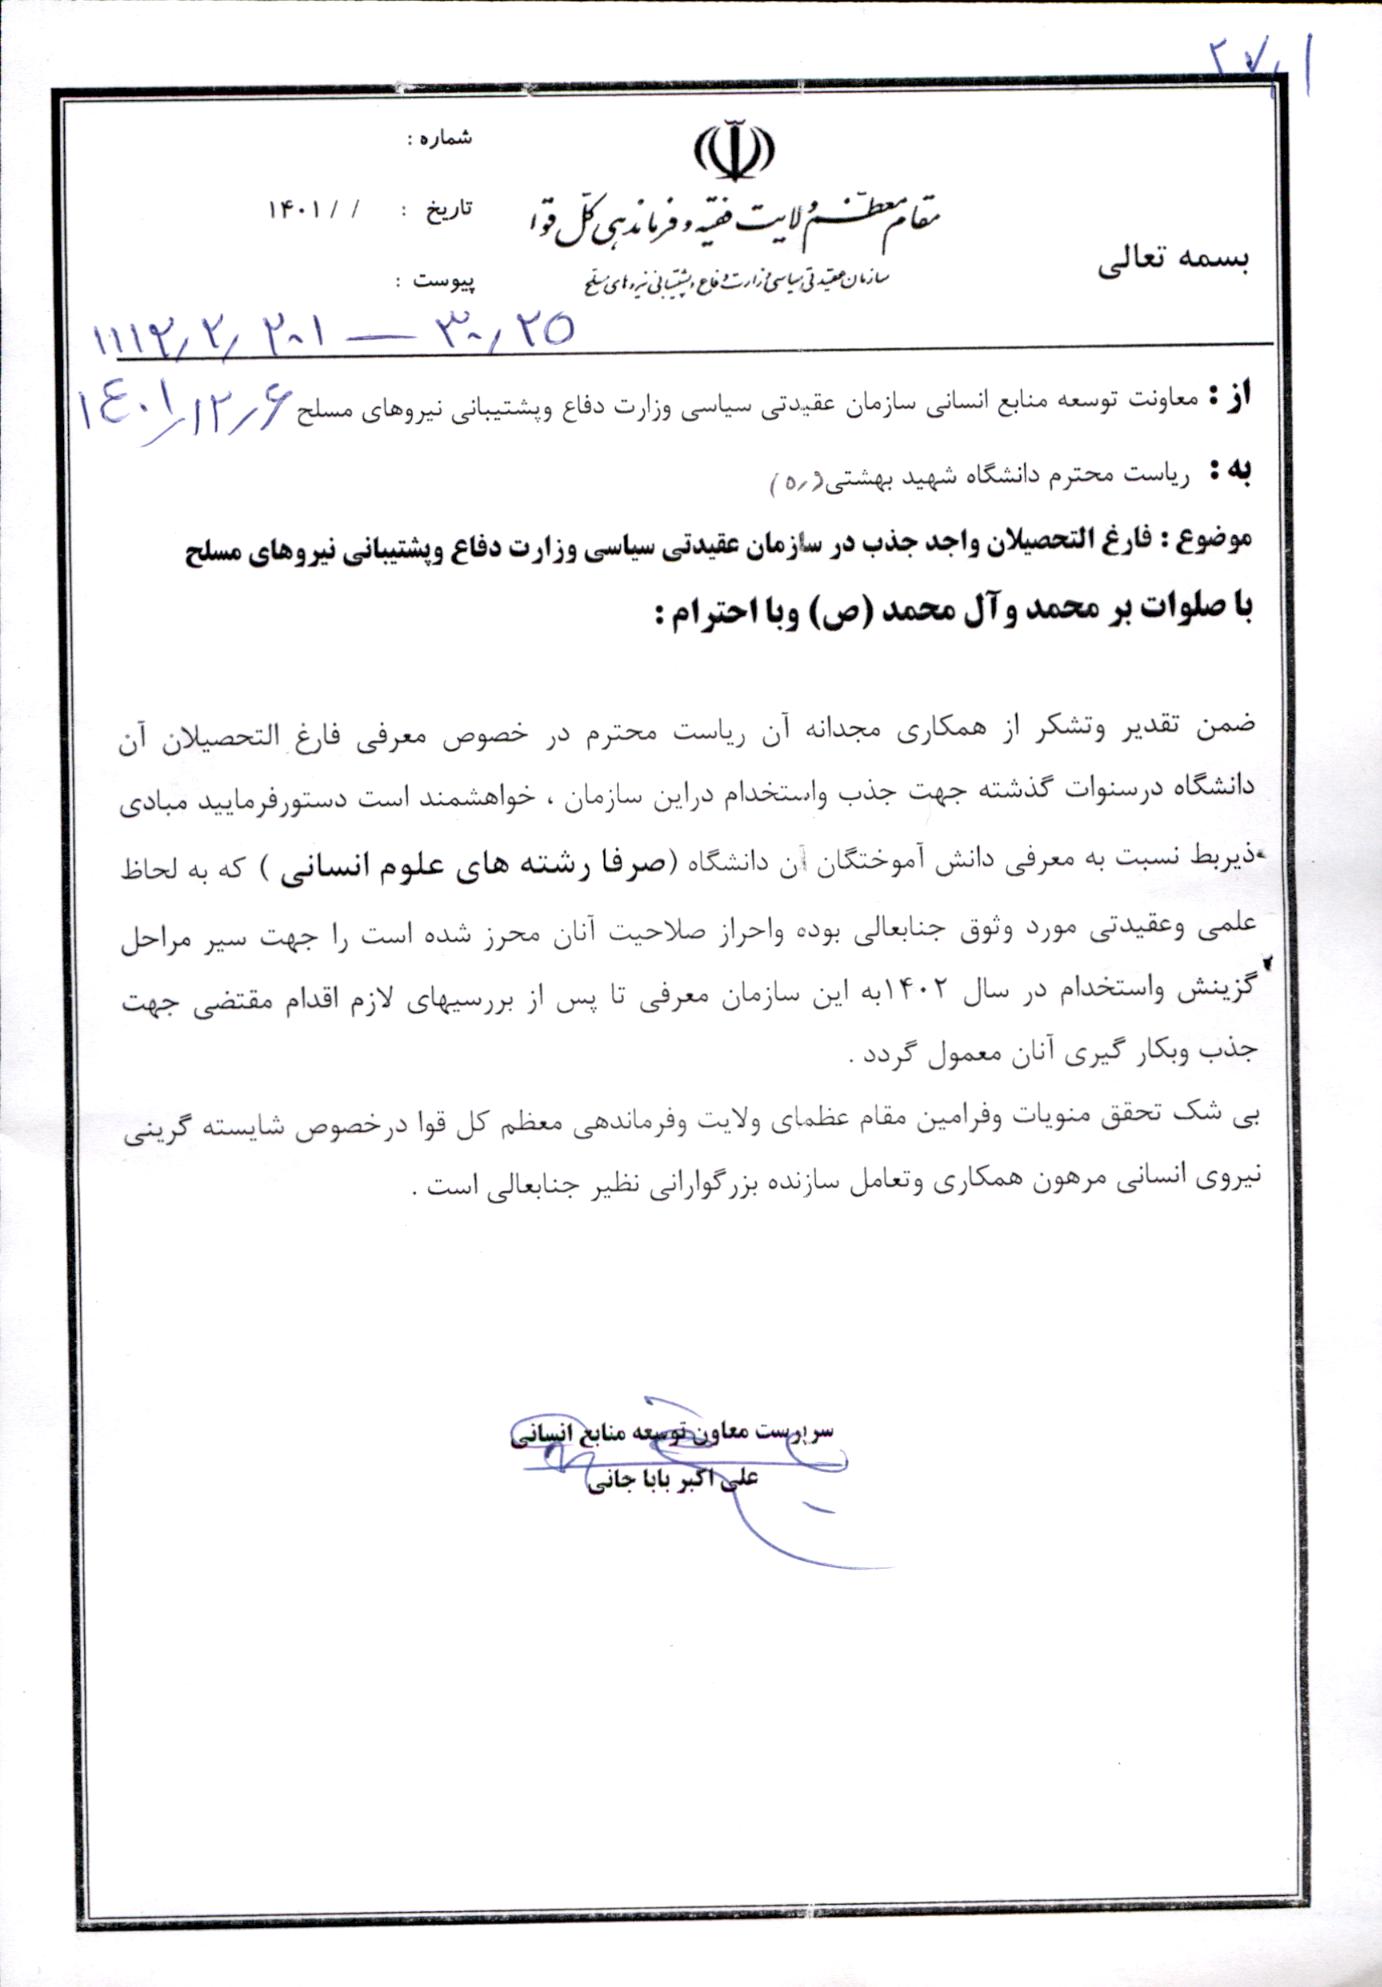 بسمه تعالی
مقام معظم ولایت فقیه و فرماندهی کل قوا
سازمان عقیدتی سیاسی وزارت دفاع و پشتیبانی نیروهای مسلح
شماره :
تاریخ : / / ۱۴۰۱
پیوست :
۱۴۰۱/۱۲/۶
از : معاونت توسعه منابع انسانی سازمان عقیدتی سیاسی وزارت دفاع وپشتیبانی نیروهای مسلح
به : ریاست محترم دانشگاه شهید بهشتی(ره)
موضوع : فارغ التحصیلان واجد جذب در سازمان عقیدتی سیاسی وزارت دفاع وپشتیبانی نیروهای مسلح
با صلوات بر محمد وآل محمد (ص) وبا احترام :
ضمن تقدیر وتشکر از همکاری مجدانه آن ریاست محترم در خصوص معرفی فارغ التحصیلان آن
دانشگاه درسنوات گذشته جهت جذب واستخدام دراین سازمان ، خواهشمند است دستورفرمایید مبادی
ذیربط نسبت به معرفی دانش آموختگان آن دانشگاه (صرفا رشته های علوم انسانی ) که به لحاظ
علمی وعقیدتی مورد وثوق جنابعالی بوده واحراز صلاحیت آنان محرز شده است را جهت سیر مراحل
گزینش واستخدام در سال ۱۴۰۲به این سازمان معرفی تا پس از بررسیهای لازم اقدام مقتضی جهت
جذب وبکار گیری آنان معمول گردد .
بی شک تحقق منویات وفرامین مقام عظمای ولایت وفرماندهی معظم کل قوا درخصوص شایسته گرینی
نیروی انسانی مرهون همکاری وتعامل سازنده بزرگوارانی نظیر جنابعالی است .
سرپرست معاون توسعه منابع انسانی
علی اکبر بابا جانی